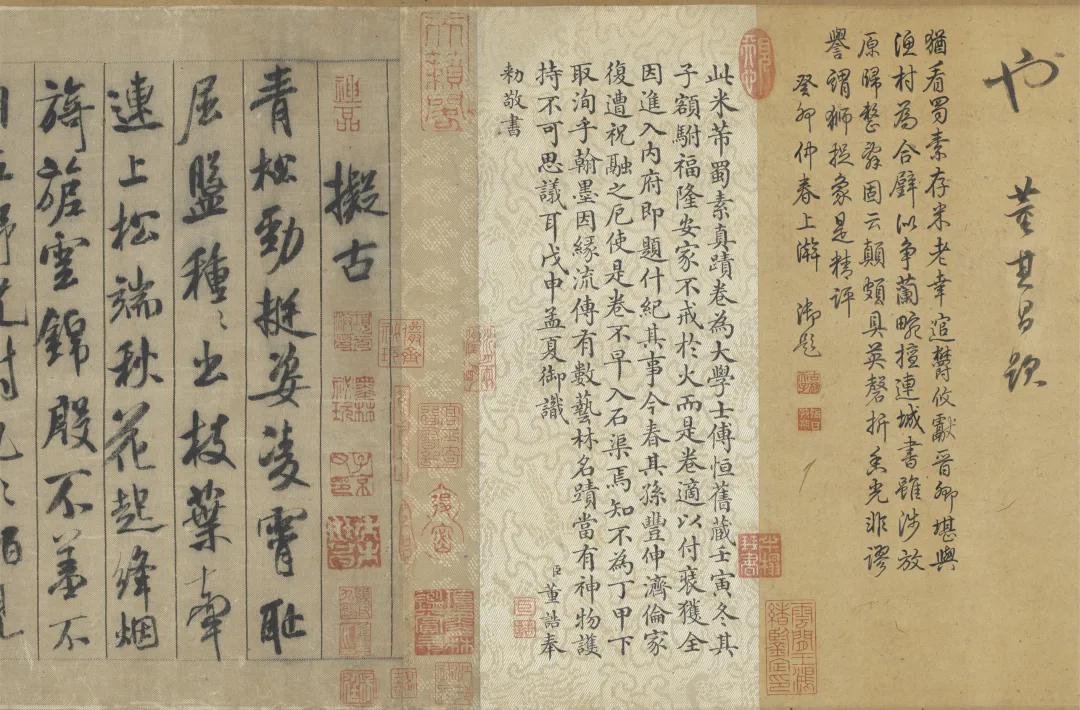 也 董其昌題
猶看蜀素存米老幸逭鬱攸獻晉卿堪與
漁村為合璧以爭蘭畹擅連城書雖涉放
原歸整固云顛頗具英磬折香光非謬
譽謂獅捉象是精評
癸卯仲春上澣 御題
此米芾蜀素真蹟卷為大學士傅恒舊藏壬寅冬其
子額駙福隆安家不戒於火而是卷適以付裱獲全
因進入內府即題什紀其事今春其孫豐伸濟倫家
復遭祝融之厄使是卷不早入石渠焉知不為丁甲下
取洵乎翰墨因緣流傳有數藝林名蹟當有神物護
持不可思議耳戊申孟夏御識 臣董誥奉
勅敬書
擬古
青松勁挺姿凌霄恥
屈盤種〻出枝葉牽
連上松端秋花起絳烟
旖旎雲錦殷不羞不